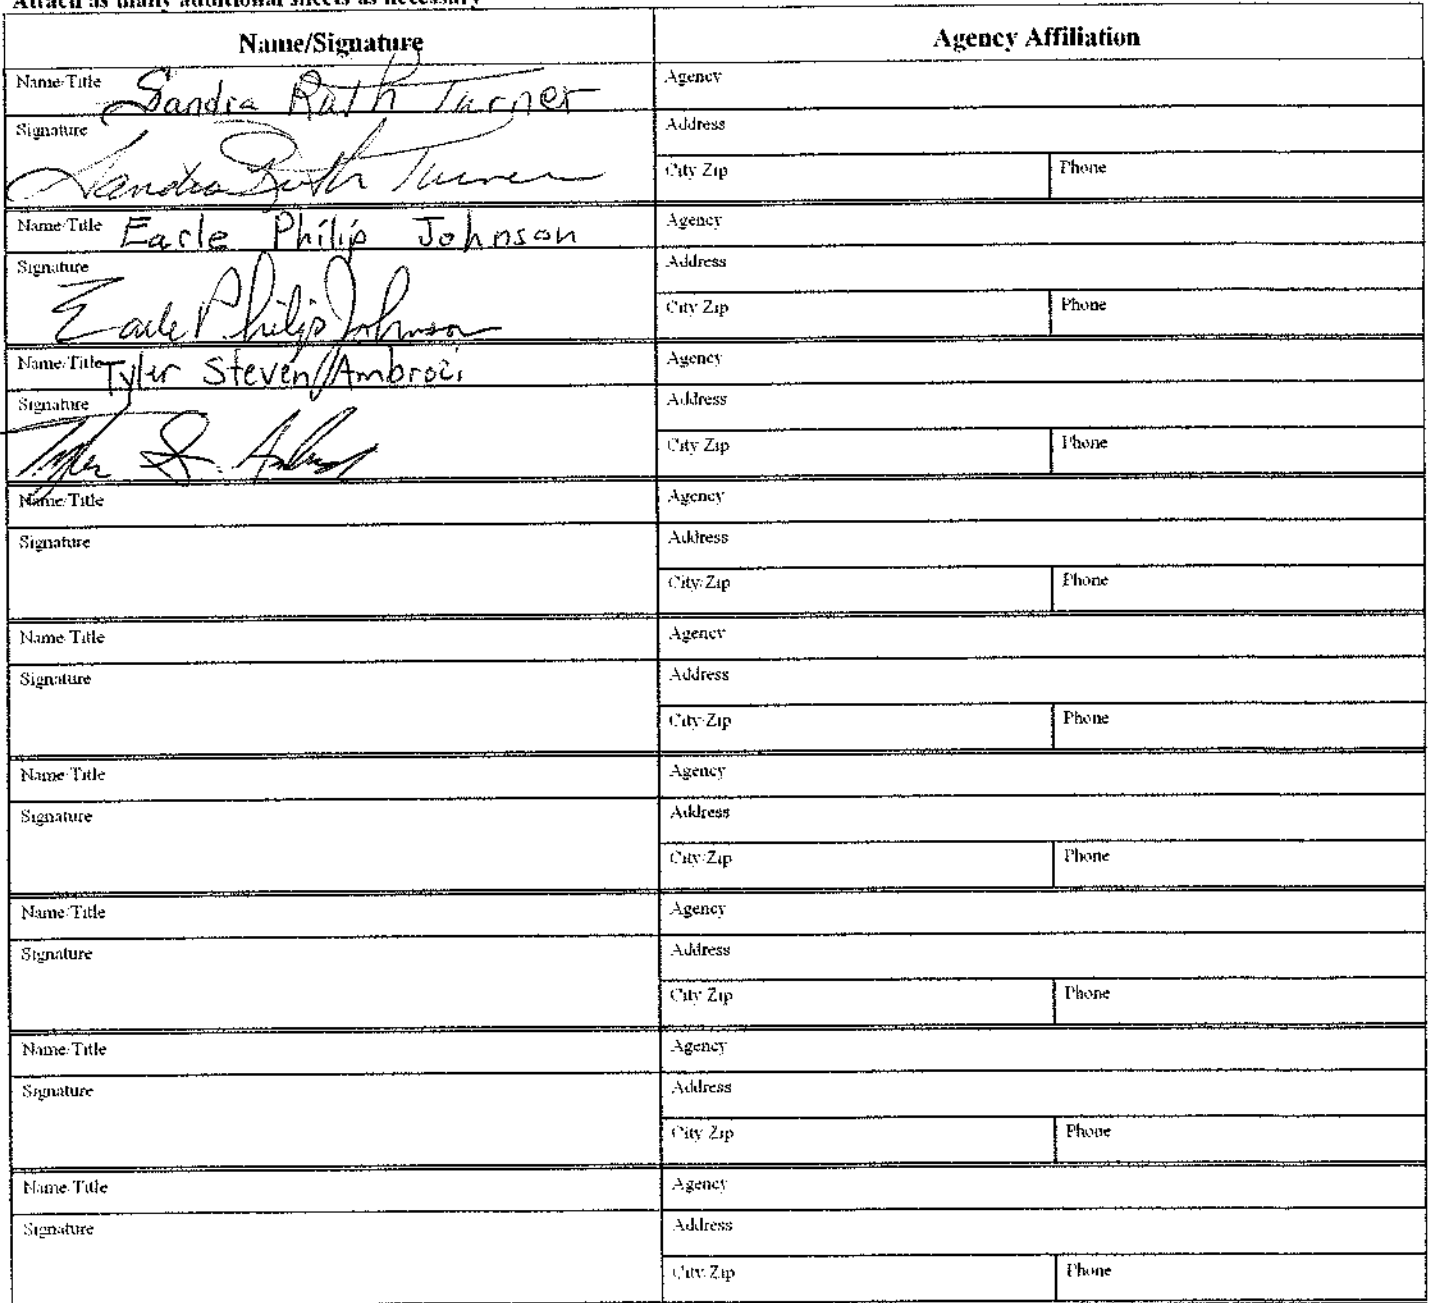 Attach as many additional sheets as necessary
Name/Signature Agency Affiliation
Name/Title Sandra Ruth Turner Agency
Signature Sandra Ruth Turner Address
City/Zip Phone
Name/Title Earle Philip Johnson Agency
Signature Earle Philip Johnson Address
City/Zip Phone
Name/Title Tyler Steven Ambrozi Agency
Signature Tyler S. Address
City/Zip Phone
Name/Title Agency
Signature Address
City/Zip Phone
Name/Title Agency
Signature Address
City/Zip Phone
Name/Title Agency
Signature Address
City/Zip Phone
Name/Title Agency
Signature Address
City/Zip Phone
Name/Title Agency
Signature Address
City/Zip Phone
Name/Title Agency
Signature Address
City/Zip Phone